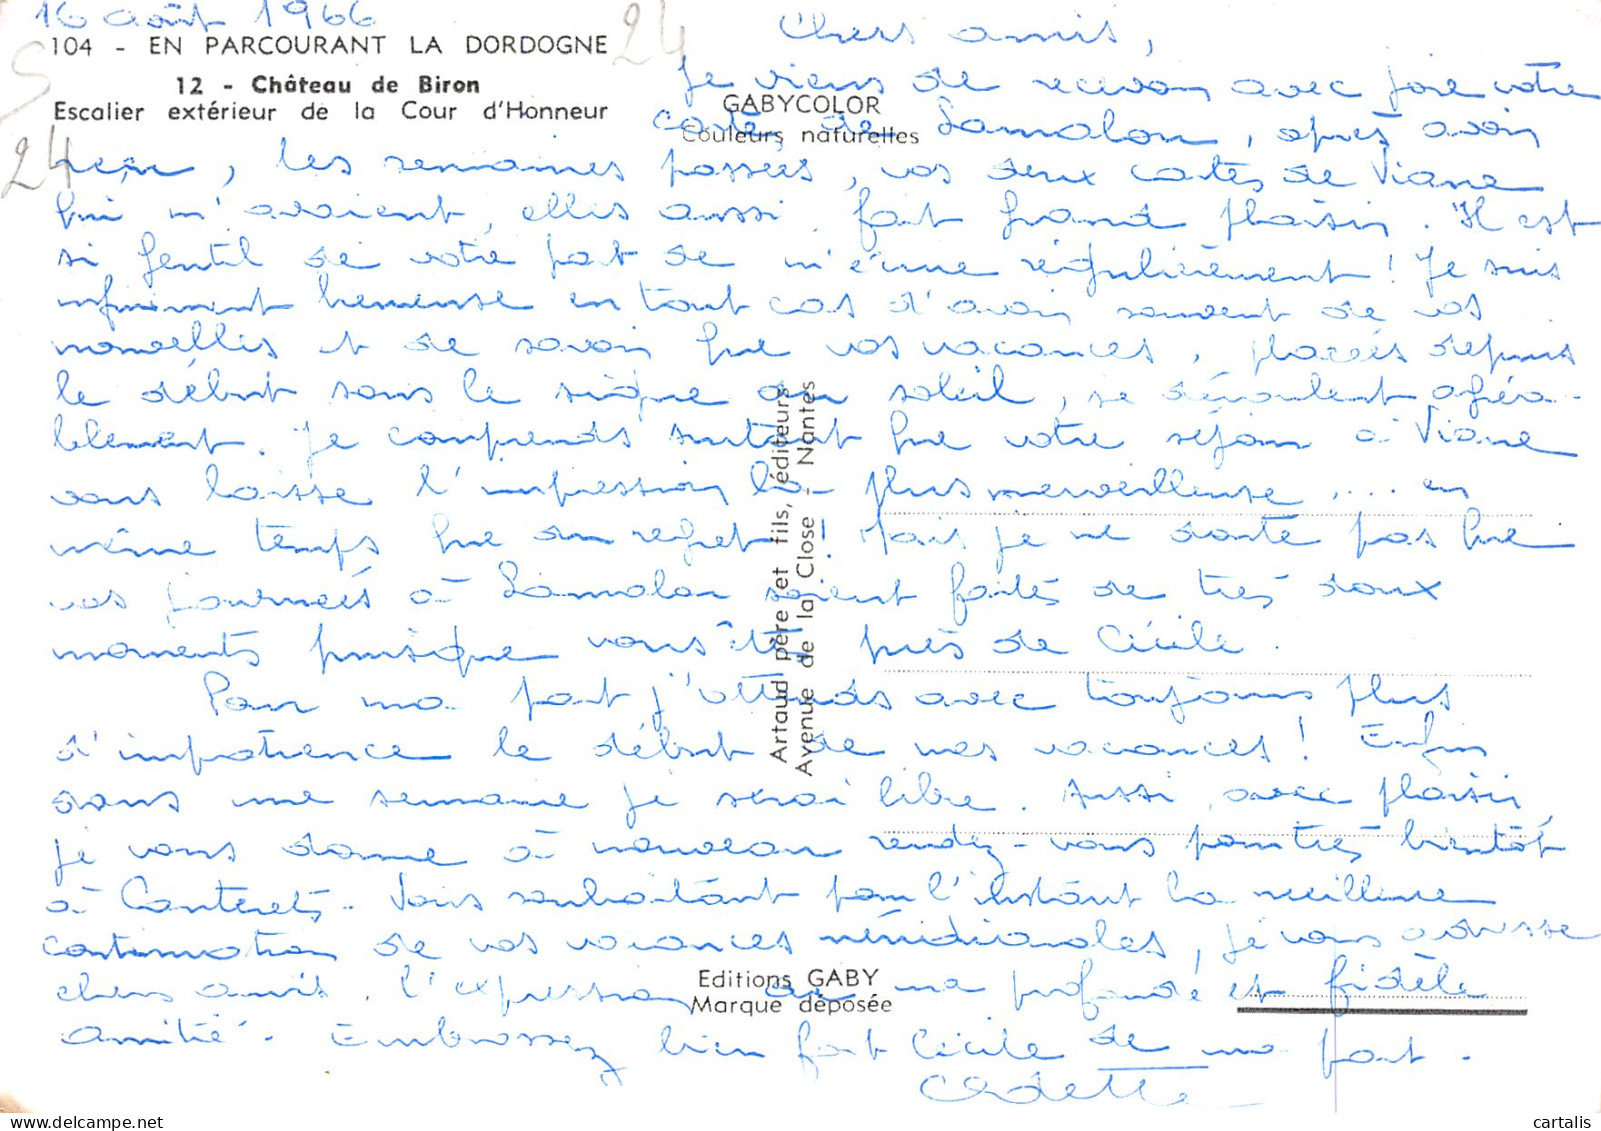 16 août 1966
104 - EN PARCOURANT LA DORDOGNE
12 - Château de Biron
Escalier extérieur de la Cour d'Honneur
24
S
24
GABYCOLOR
Couleurs naturelles
Chers amis,
Je viens de recevoir avec joie votre
carte de Lamalou, après avoir
reçu, les semaines passées, vos deux cartes de Viane
qui m'avaient, elles aussi, fait grand plaisir. Il est
si gentil de votre part de m'écrire régulièrement ! Je suis
infiniment heureuse en tout cas d'avoir souvent de vos
nouvelles et de savoir que vos vacances, placées depuis
le début sous le signe du soleil, se déroulent agréa-
blement. Je comprends surtout que votre séjour à Viane
vous laisse l'impression la plus merveilleuse .... en
même temps que du regret ! Mais je ne doute pas que
vos journées à Lamalou soient faites de très doux
moments puisque vous êtes près de Cécile.
Pour ma part j'attends avec toujours plus
d'impatience le début de mes vacances ! Enfin
dans une semaine je serai libre. Aussi, avec plaisir
je vous donne à nouveau rendez-vous pour très bientôt
à Cauterets. Vous souhaitant pour l'instant la meilleure
continuation de vos vacances méridionales, je vous adresse
chers amis, l'expression de ma profonde et fidèle
amitié. Embrassez bien fort Cécile de ma part.
Odette
Artaud père et fils, éditeurs
Avenue de la Close - Nantes
Editions GABY
Marque déposée
cartalis